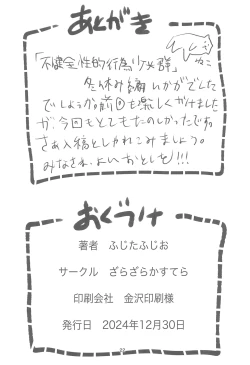 あとがき
ねこ
「不健全性的行為少女群」
冬休み編いかがでした
でしょうか。前回も楽しくかけました
が、今回もとてもたのしかったですね
さあ入稿としゃれこみましょう。
みなさま、よいおとしを!!!
おくづけ
著者 ふじたふじお
サークル ざらざらかすてら
印刷会社 金沢印刷様
発行日 2024年12月30日
22